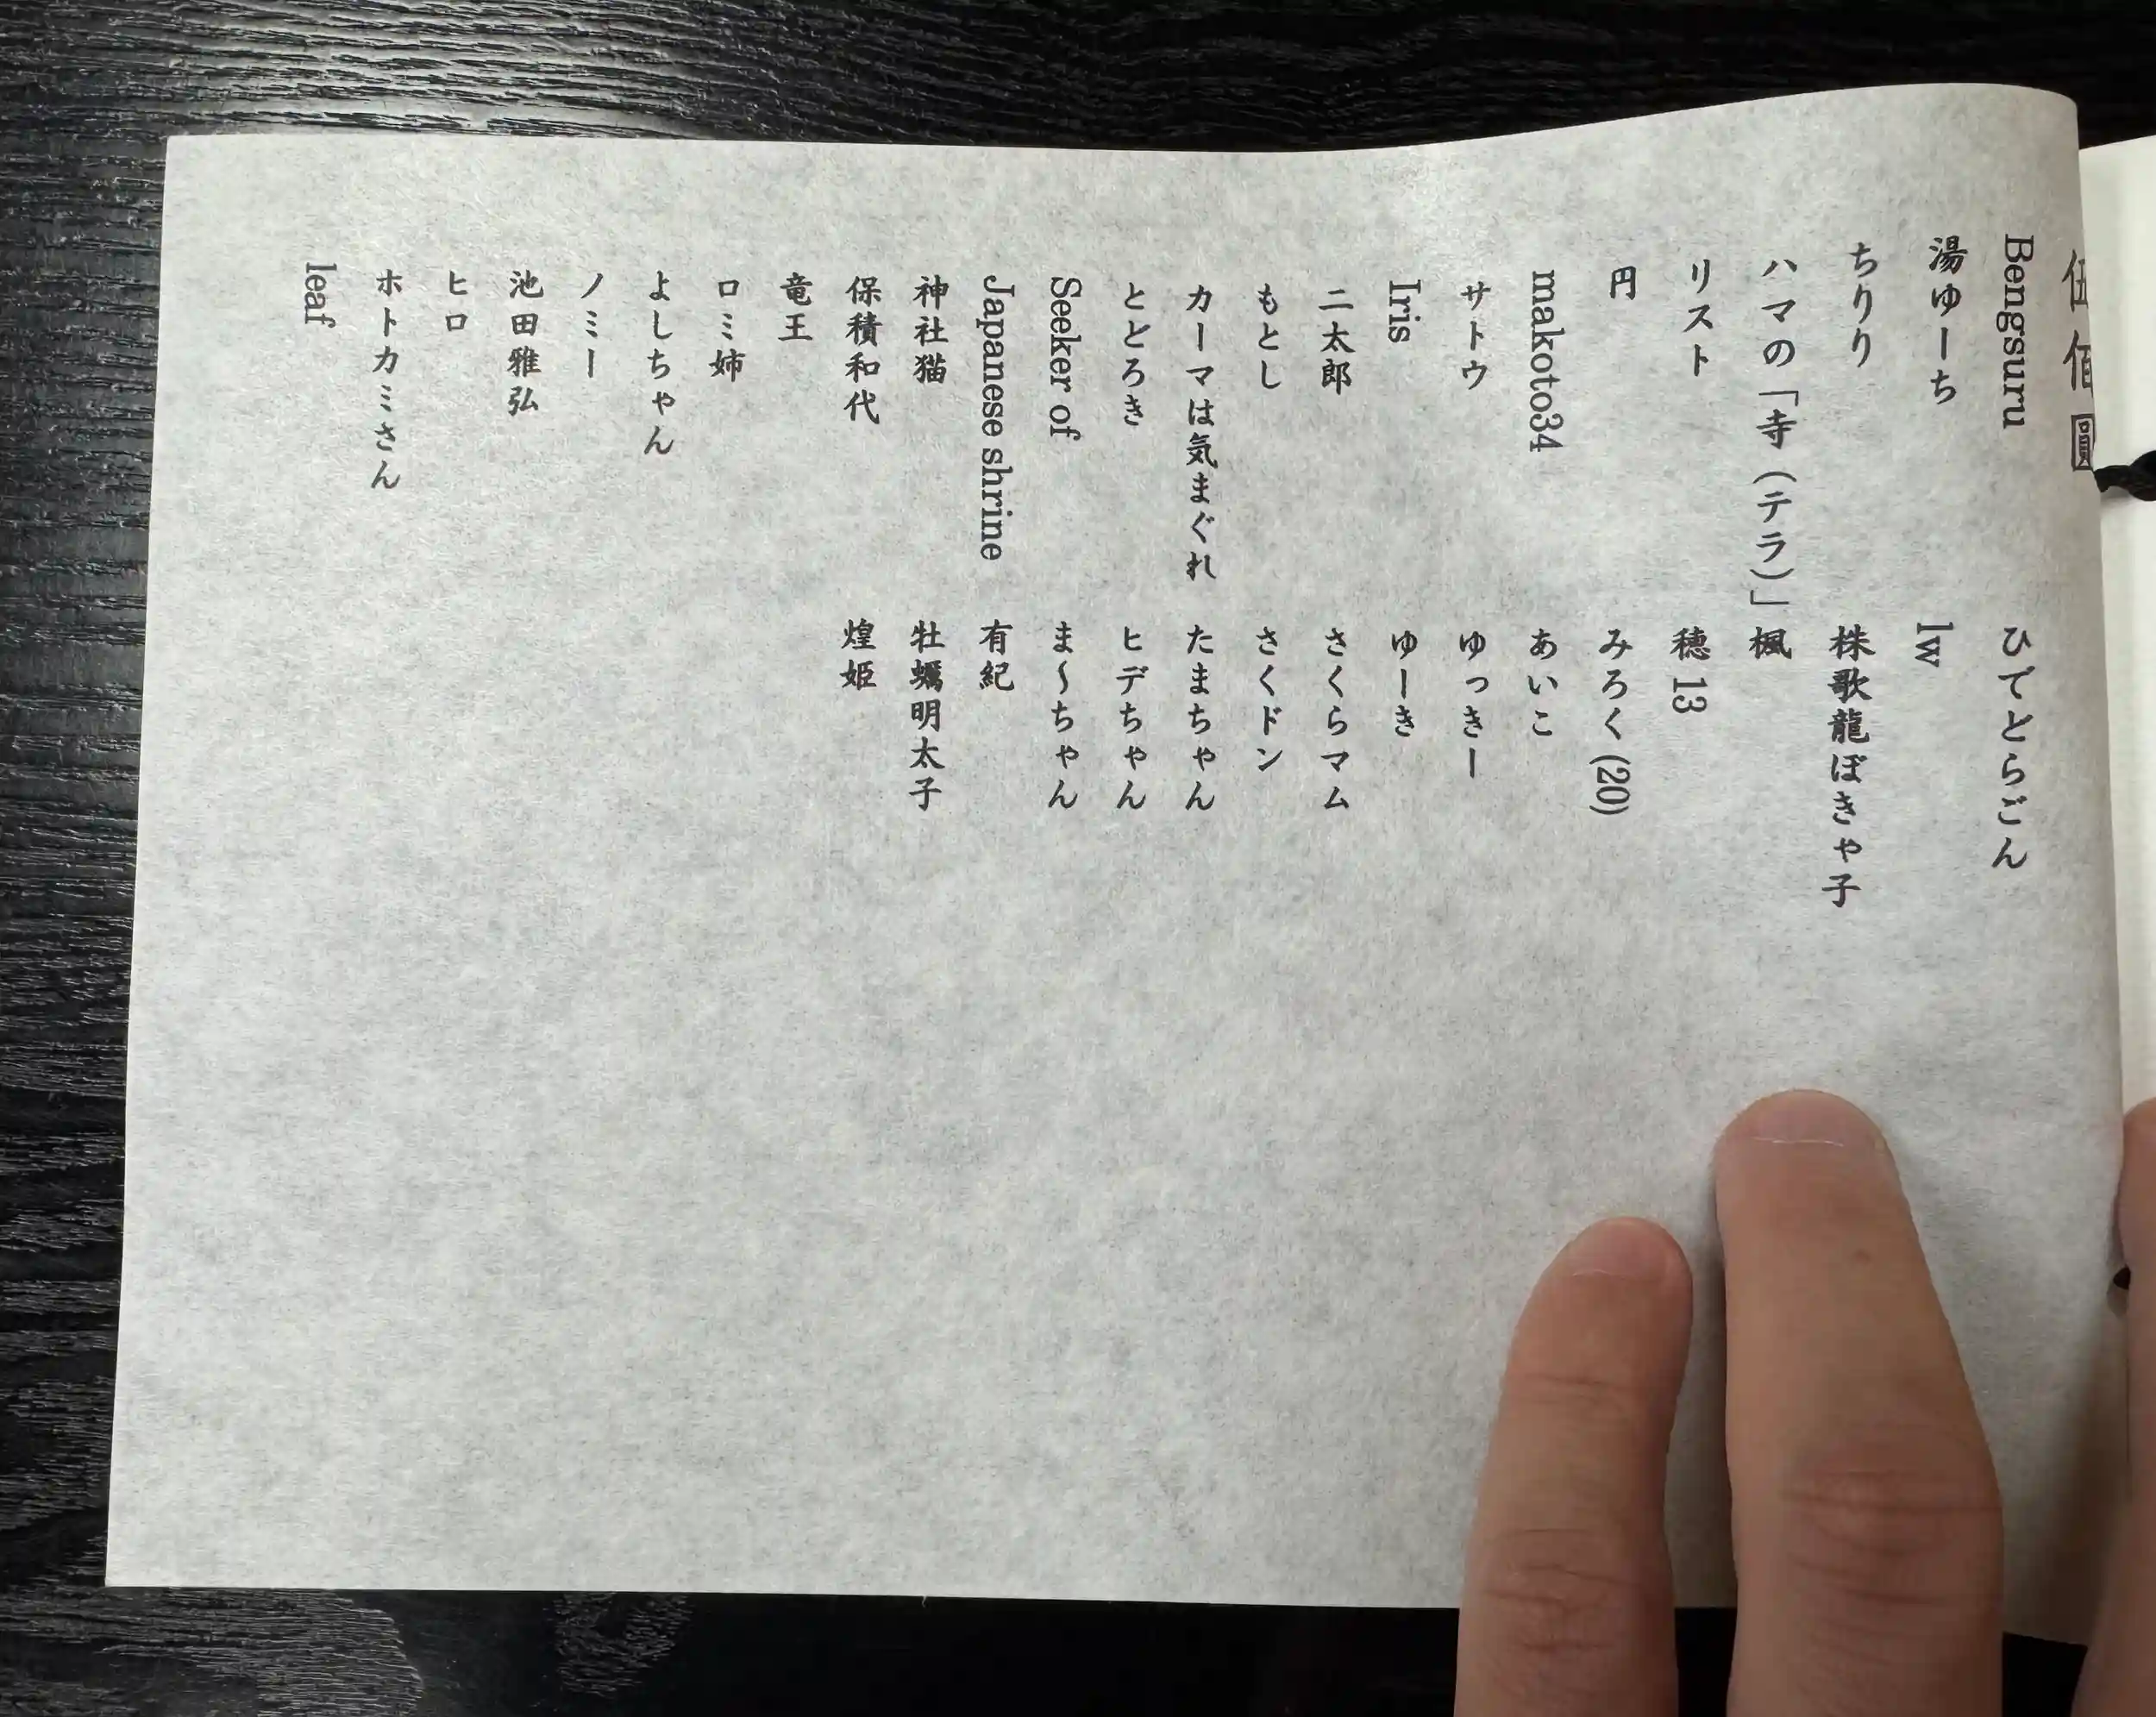 伍佰圓
Bengsuru
湯ゆーち
ちりり
ハマの「寺（テラ）」
リスト
円
makoto34
サトウ
Iris
二太郎
もとし
カーマは気まぐれ
ととろき
Seeker of
Japanese shrine
神社猫
保積和代
竜王
ロミ姉
よしちゃん
ノミー
池田雅弘
ヒロ
ホトカミさん
leaf
ひでとらごん
lw
株歌龍ぼきゃ子
楓
穂13
みろく(20)
あいこ
ゆっきー
ゆーき
さくらマム
さくドン
たまちゃん
ヒデちゃん
ま～ちゃん
有紀
牡蠣明太子
煌姫